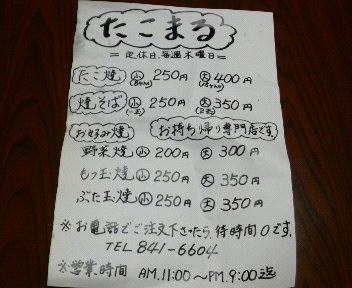 たこまる
=定休日、毎週木曜日=
たこ焼 小 250円 大 400円
焼そば 小 250円 大 350円
お好み焼 お持ち帰り専門店です
野菜焼 小 200円 大 300円
もつ玉焼 小 250円 大 350円
ぶた玉焼 小 250円 大 350円
※お電話でご注文下さったら、待時間0です。
TEL 841-6604
※営業時間 AM.11:00～PM.9:00迄